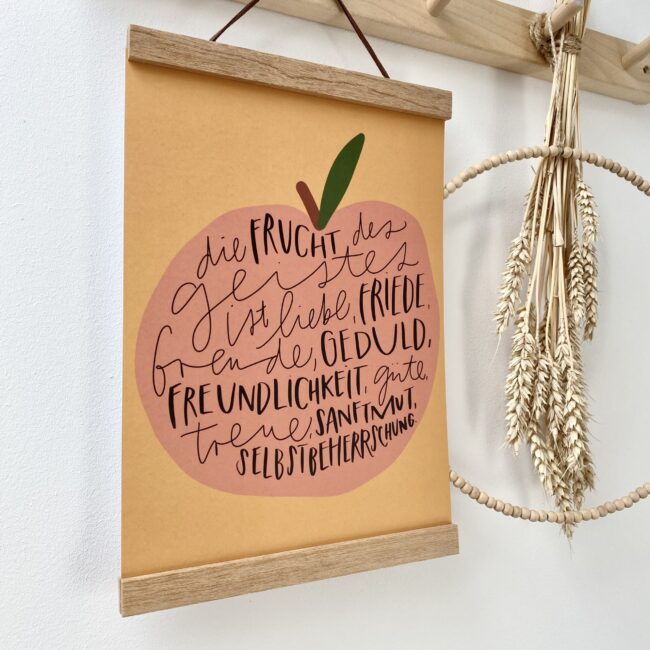 die FRUCHT des
geistes
ist liebe, FRIEDE,
freude, GEDULD,
FREUNDLICHKEIT, güte,
treue, SANFTMUT,
SELBSTBEHERRSCHUNG.